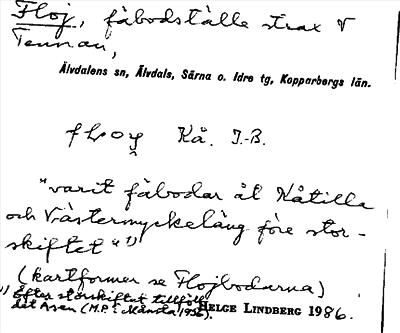 Floj, fäbodställe strax V
Tennan,
Älvdalens sn, Älvdals, Särna o. Idre tg, Kopparbergs län.
floy Kå. J.-B.
"varit fäbodar åt Kåtilla
och Västermyckeläng före stor-
skiftet" 1)
(kartformer se Flojbodarna)
1) Efter storskiftet tillföll
det Åsen (M.P. i Månsta 1936).
HELGE LINDBERG 1986.